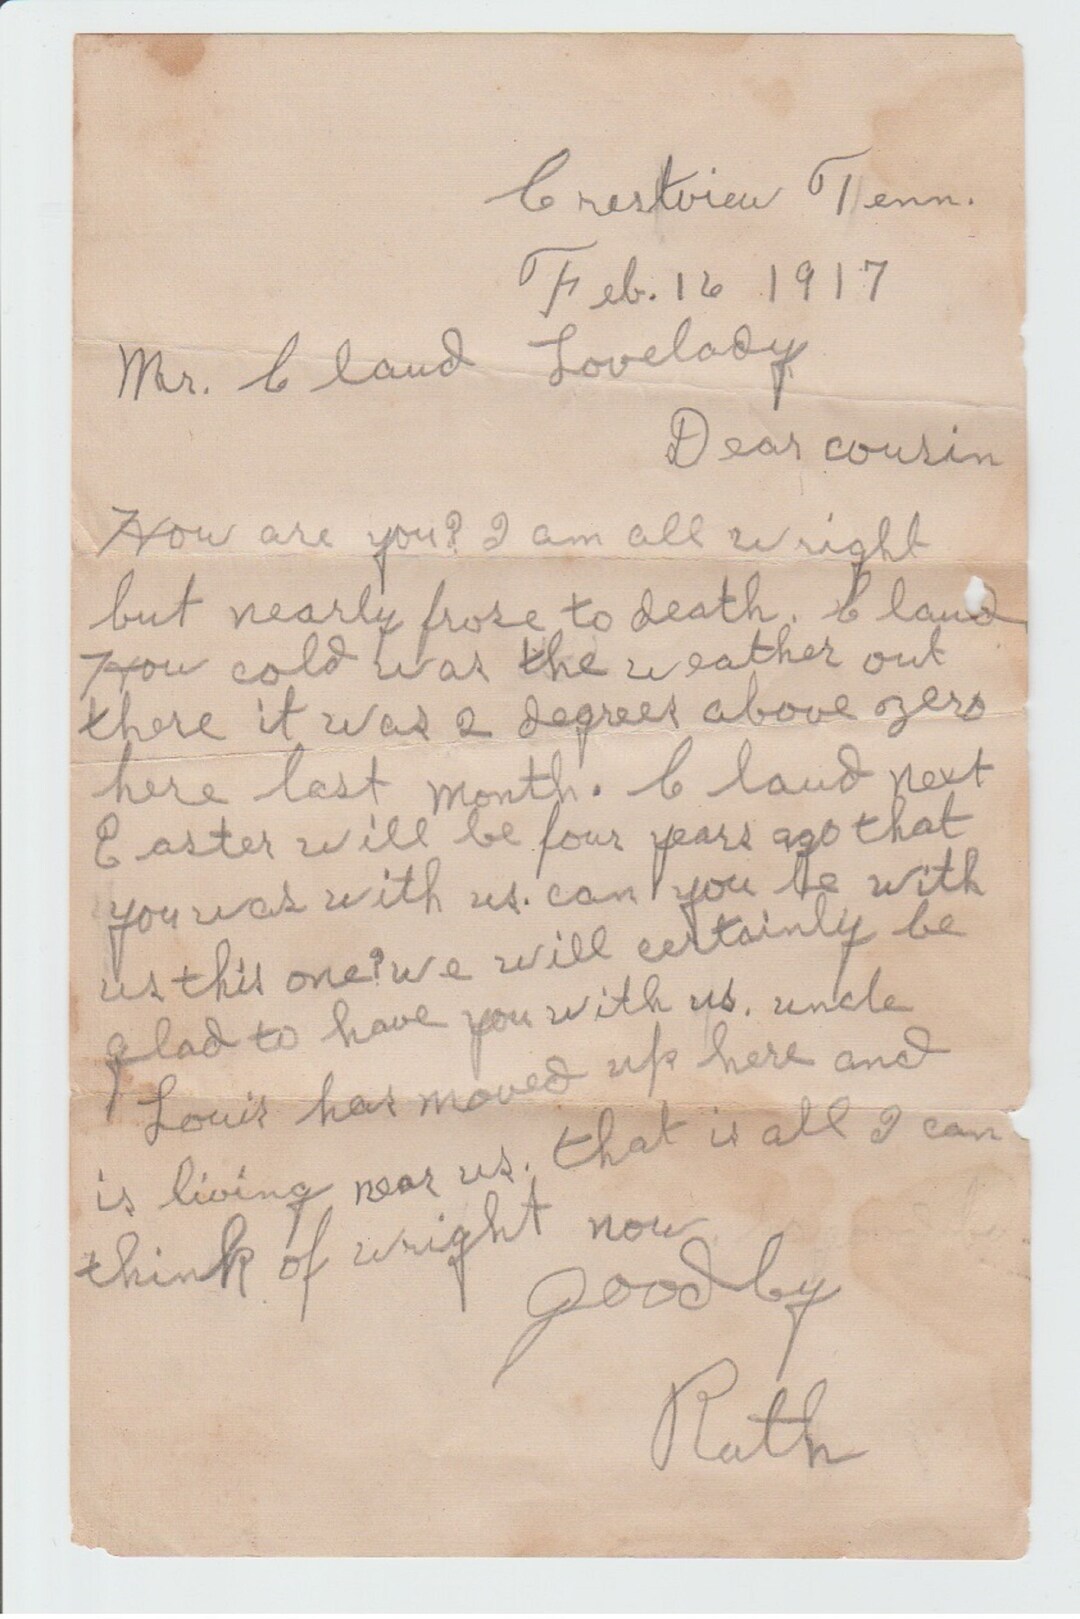 Crestview Tenn.
Feb. 16 1917
Mr. Claud Lovelady
Dear cousin
How are you? I am all wright
but nearly froze to death. Claud
How cold was the weather out
there it was 2 degrees above zero
here last month. Claud next
Easter will be four years ago that
you was with us. can you be with
us this one? we will certainly be
glad to have you with us. uncle
Louis has moved up here and
is living near us. that is all I can
think of wright now
goodby
Ruth